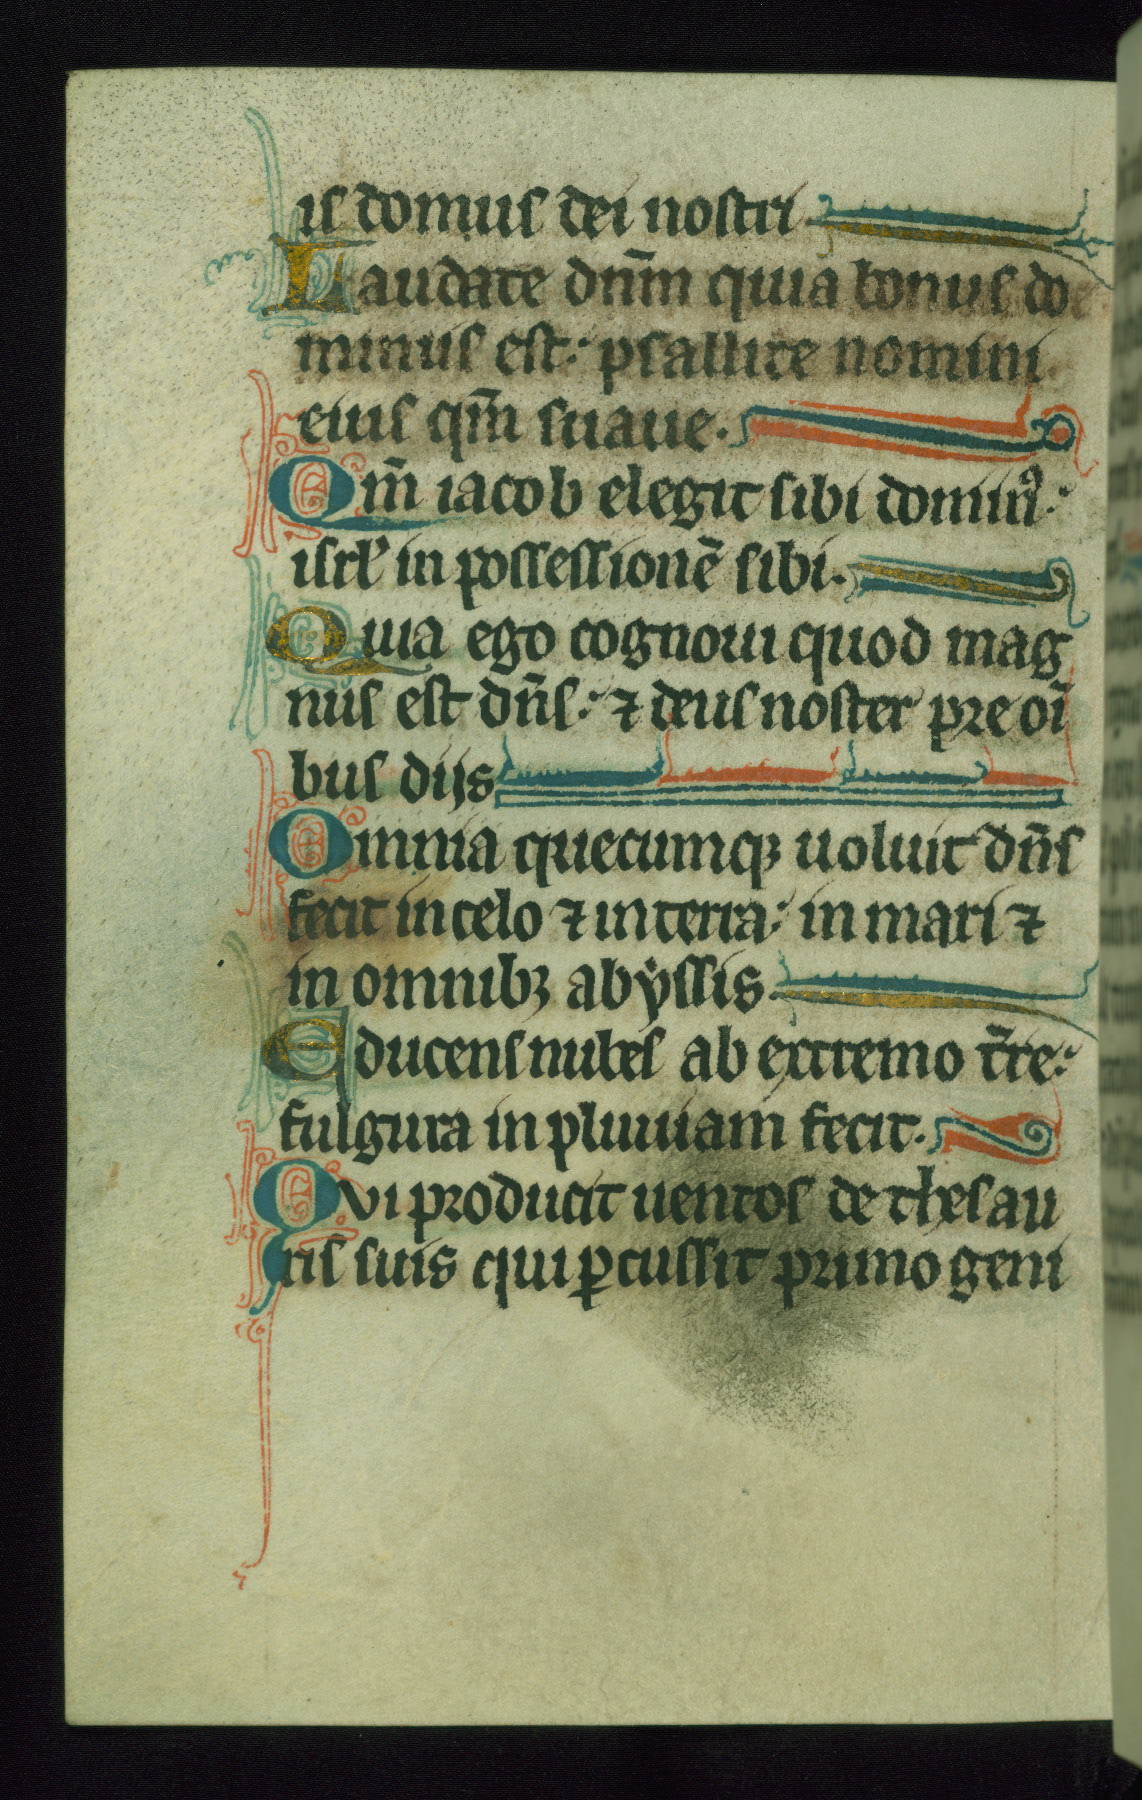 is domus dei nostri
Laudate dnm̄ quia bonus do
minus est: psallite nomini
eius qm̄ suaue.
Qm̄ iacob elegit sibi dominꝰ:
isrl' in possessionē sibi.
Quia ego cognoui quod mag
nus est dn̄s: ⁊ deus noster pre oī
bus dijs
Omnia quecumqꝫ uoluit dn̄s
fecit in celo ⁊ in terra: in mari ⁊
in omnibꝫ abẏssis.
Educens nubes ab extremo t̄re:
fulgura in pluuiam fecit.
Qvi producit uentos de thesau
ris suis qui ꝑcussit primo geni